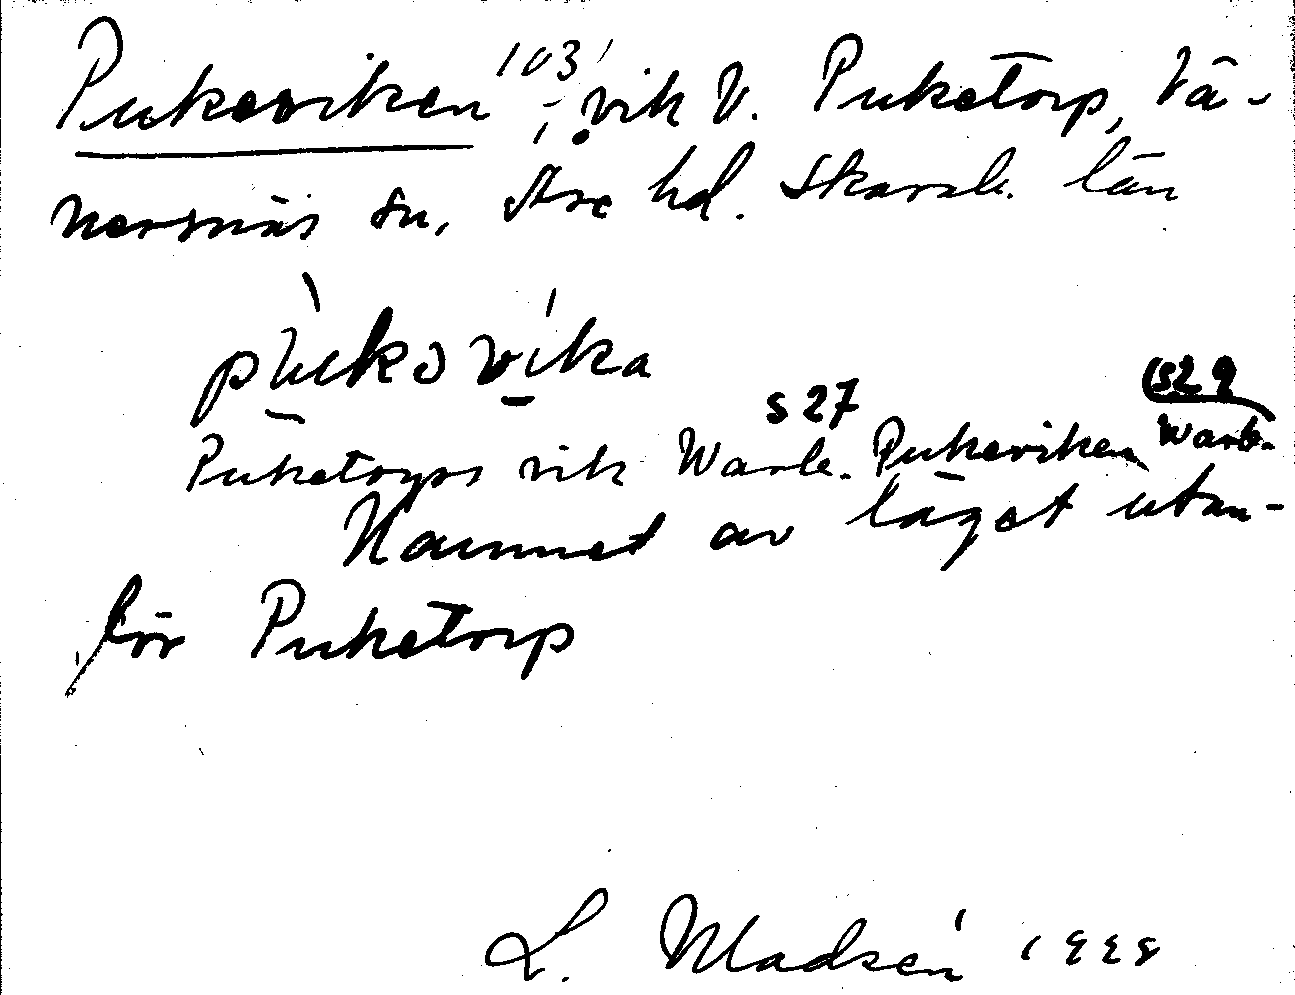 Pukeviken 103, vik V. Puketorp, Vä-
nersnäs sn, Åse hd. Skarab. län
pùkəvíka
Puketorps vik Warb. s 27 Pukeviken Warb. s 29
Namnet av läget utan-
för Puketorp
L. Madsén